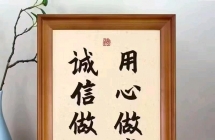 用心做
诚信做